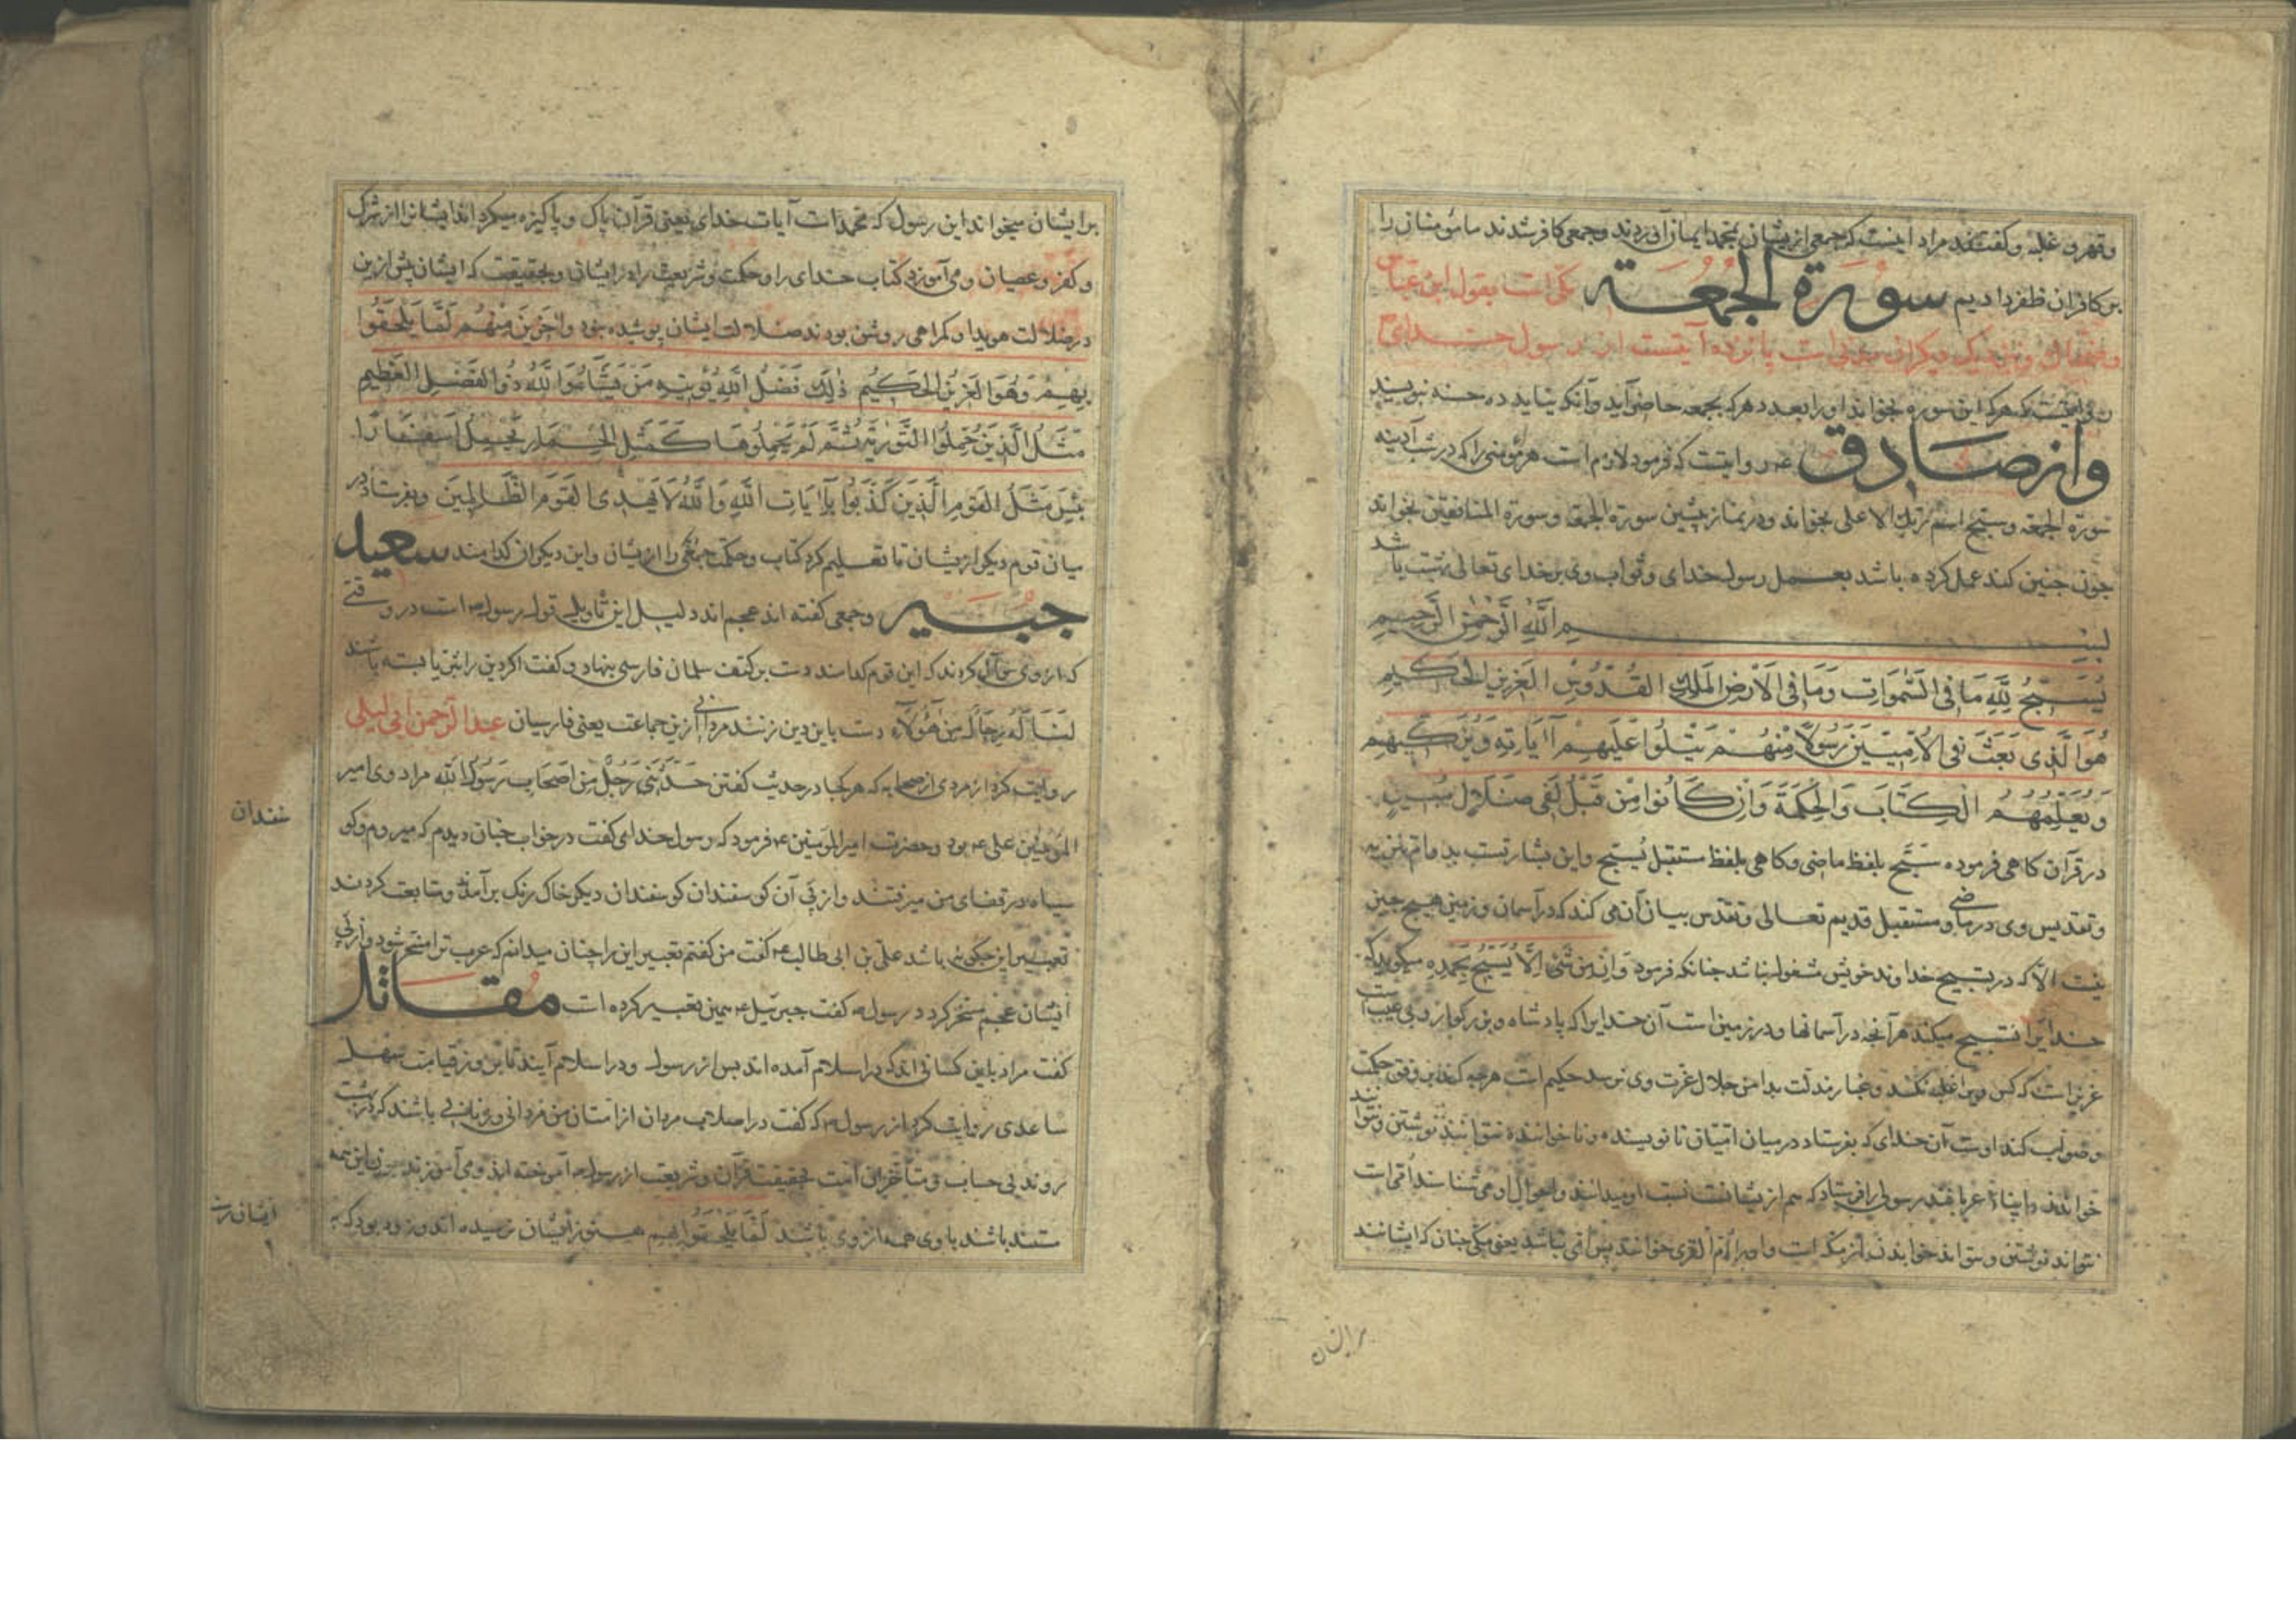 وقهر و غلبه و گفتند مراد اینست که جمعی ازیشان بمحمد ایمان آوردند و جمعی کافر شدند ما مؤمنان را
بر کافران ظفر دادیم سورة الجمعة مکی است بقول ابن عباس
و ضحاک و بنزدیک دیگران مدنی است پانزده آیتست از رسول خدای
روایتست که هرکه این سوره بخواند او را بعدد هرکه بجمعه حاضر آید و آنکه نیاید ده حسنه بنویسند
وازصادق ع روایتست که فرمود لازم است هر مؤمنی را که در شب آدینه
سورة الجمعة و سبح اسم ربك الاعلی بخواند و در نماز پیشین سورة الجمعة و سورة المنافقین بخواند
چون چنین کند عمل کرده باشد بعمل رسول خدای و ثواب وی بر خدای تعالی بهشت باشد
بسم الله الرحمن الرحیم
یُسَبِّحُ لِلَّهِ مَا فِی السَّمٰوَاتِ وَمَا فِی الْاَرْضِ الْمَلِكِ الْقُدُّوسِ الْعَزِیزِ الْحَكِیمِ
هُوَ الَّذِی بَعَثَ فِی الْاُمِّیِّینَ رَسُولًا مِنْهُمْ یَتْلُوا عَلَیْهِمْ آیَاتِهِ وَیُزَكِّیهِمْ
وَیُعَلِّمُهُمُ الْكِتَابَ وَالْحِكْمَةَ وَاِنْ كَانُوا مِنْ قَبْلُ لَفِی ضَلَالٍ مُبِینٍ
در قرآن گاهی فرموده سَبَّحَ بلفظ ماضی و گاهی بلفظ مستقبل یُسَبِّحُ و این بشارتست بدوام تنزیه
و تقدیس وی در ماضی و مستقبل قدیم تعالی و تقدس بیان آن می کند که در آسمان و زمین هیچ چیز
نیست الا که در تسبیح خداوند خویش مشغول باشد چنانکه فرمود وَاِنْ مِنْ شَیْءٍ اِلَّا یُسَبِّحُ بِحَمْدِهِ میگوید که
خدایرا تسبیح میکند هرآنچه در آسمانها و در زمین است آن خدایرا که پادشاه و بزرگوار و بی عیب است
عزیز است که کس ویرا غلبه نکند و غبار مذلت بدامن جلال عزت وی نرسد حکیم است هرچه کند بر وفق حکمت
و صواب کند اوست آن خدای که بفرستاد در میان امّیان نانویسنده و ناخواننده نتوانند نوشتن و نتوانند
خواندن و ایشان عرب رسولی را فرستاد که هم ازیشانست نسب او میدانند و احوال او می شناسند امّی است
نتواند نوشتن و نتواند خواندن از مکه است و او را امّ القری خوانند پس امّی باشد یعنی مکی چنان که ایشانند
بر ایشان
بر ایشان میخواند این رسول که محمد است آیات خدای یعنی قرآن پاک و پاکیزه میگرداند ایشانرا از شرک
و کفر و عصیان و می آموزد کتاب خدای را و حکمت و شریعت را مر ایشان و بحقیقت که ایشان پیش ازین
در ضلالت هویدا و گمراهی روشن بودند ضلالت ایشان پوشیده نبود وَآخَرِینَ مِنْهُمْ لَمَّا یَلْحَقُوا
بِهِمْ وَهُوَ الْعَزِیزُ الْحَكِیمُ ذٰلِكَ فَضْلُ اللَّهِ یُؤْتِیهِ مَنْ یَشَاءُ وَاللَّهُ ذُوالْفَضْلِ الْعَظِیمِ
مَثَلُ الَّذِینَ حُمِّلُوا التَّوْرٰیةَ ثُمَّ لَمْ یَحْمِلُوهَا كَمَثَلِ الْحِمَارِ یَحْمِلُ اَسْفَارًا
بِئْسَ مَثَلُ الْقَوْمِ الَّذِینَ كَذَّبُوا بِآیَاتِ اللَّهِ وَاللَّهُ لَا یَهْدِی الْقَوْمَ الظَّالِمِینَ و بفرستاد در
میان قوم دیگر ازیشان تا تعلیم کرد کتاب و حکمت جمعی را ازیشان و این دیگران کدامند سعید
جبیر و جمعی گفته اند عجم اند دلیل این تأویل قول رسول است در وقتی
که از وی سؤال کردند که این قوم کدامند دست بر کتف سلمان فارسی نهاد و گفت اگر دین را بثریا بسته باشند
لَنَالَهُ رِجَالٌ مِنْ هٰؤُلَاءِ دست باین دین زنند مردانی ازین جماعت یعنی فارسیان عبدالرحمن ابی لیلی
روایت کرد از مردی از صحابه که هر کجا در حدیث گفتن حَدَّثَنِی رَجُلٌ مِنْ اَصْحَابِ رَسُولِ اللَّهِ مراد وی امیر
المؤمنین علی ع بود و حضرت امیرالمؤمنین ع فرمود که رسول خدای گفت در خواب چنان دیدم که میروم و گو
سفندان
سیاه در قفای من میرفتند و از پی آن گوسفندان گوسفندان دیگر خاک رنگ برآمدند و متابعت کردند
تعبیر این چگونه باشد علی بن ابی طالب ع گفت من گفتم تعبیر این را چنان میدانم که عرب ترا مسخر شود و از پی
ایشان عجم مسخر گردد رسول گفت جبرئیل ع همین تعبیر کرده است مقاتل
گفت مراد باین کسانی اند که در اسلام آمده اند پس از رسول و در اسلام آیند تا بروز قیامت سهل
ساعدی روایت کرد از رسول ص که گفت در اصلاب مردان از امتان من مردانی و زنانی باشند که در بهشت
روند بی حساب و متأخران امت بحقیقت قرآن و شریعت از رسول آموخته اند و می آموزند این همه
ایشان
مستند باشد با وی همه از وی باشد لَمَّا یَلْحَقُوا بِهِم هنوز بایشان نرسیده اند و زود بود که